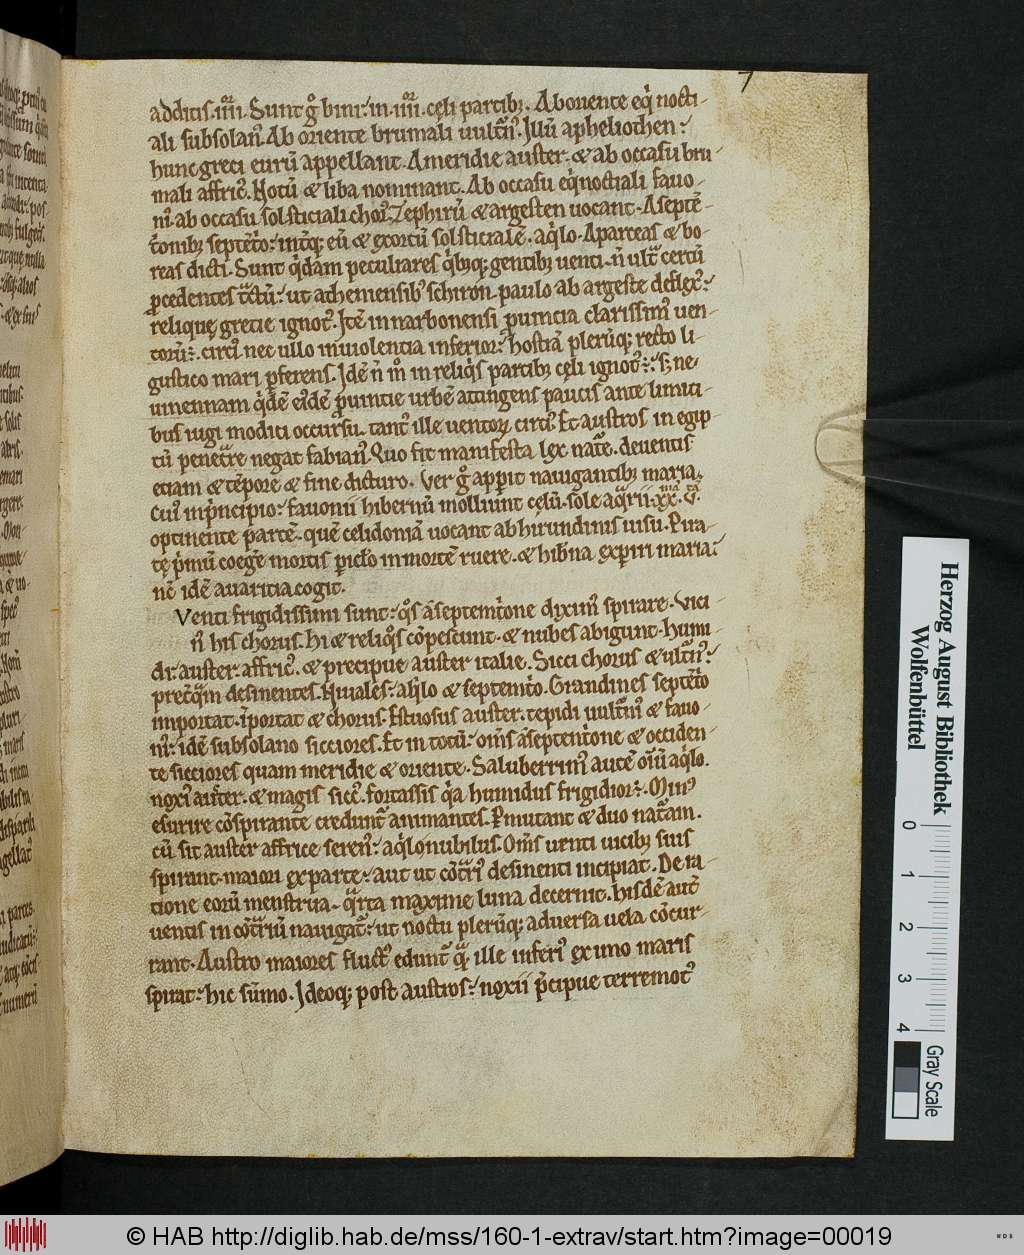 7
additis .iiii. Sunt g̊ bini: in .iiii. cęli partibꝫ. Ab oriente eq̇nocti-
ali subsolanꝰ. Ab oriente brumali uult̃nꝰ. Illũ apheliothen:
hunc greci eurũ appellant. A meridie auster. & ab occasu bru-
mali affricꝰ. Notũ & liba nominant. Ab occasu eq̇noctiali fauo-
niꝰ. ab occasu solsticiali chorꝰ. Zephirũ & argesten uocant. A septẽ-
t̃onibꝫ septẽt̊o: int̃qꝫ eũ & exortũ solsticialẽ. aq̇lo. Aparcias & bo-
reas dicti. Sunt q̇dam peculiares q̇bꝫqꝫ gentibꝫ uenti. ñ ult̃ certũ
ꝓcedentes t̃ctũ: ut atheniensibꝰ schiron. paulo ab argeste deflexꝰ:
reliquę gretie ignotꝰ. Itẽ in narbonensi ꝓuincia clarissimꝰ uen-
torũ: circiꝰ nec ullo in uiolentia inferior: hostiã plerũqꝫ recto li-
gustico mari ꝑferens. Idẽ ñ m̊ in reliq̇s partibꝫ cęli ignotꝰ: sꝫ ne
uiennam q̇dẽ eiꝰdẽ ꝓuintie urbẽ attingens paucis ante limiti-
bus iugi modici occursu. tantꝰ ille uentoꝝ circiꝰ. Et austros in egip-
tũ penet̃re negat fabianꝰ. Quo fit manifesta lex nat̃e. deuentis
etiam & tẽpore & fine dicturo. Ver g̊ apperit nauigantibꝫ maria.
Cuiꝰ in prĩcipio: fauonii hibernũ molliunt cęlũ. sole aq̇rii .xx. v.
optinente partẽ. quẽ celidoniã uocant ab hirundinis uisu. Pira-
tę p̃mũ coegẽ mortis ꝑiclo in mortẽ ruere. & hib̃na exꝑiri maria:
nẽ idẽ auaritia cogit.
Venti frigidissimi sunt: q̊s aseptemt̃one diximꝰ spirare. Vici
ñ his chorus. Hi & reliq̊s cõpescunt. & nubes abigunt. Humi
di: auster. affricꝰ. & precipue auster italie. Sicci chorus & ultnꝰ:
pretq̃m desinentes. Niuales: aq̇lo & septemt̊o. Grandines septẽt̊o
importat. ĩportat & chorus. Estuosus auster. tepidi uult̃nꝰ & fauo-
niꝰ: idẽ subsolano sicciores. Et in totũ: om̃s aseptemt̃one & occiden-
te sicciores quam meridie & oriente. Saluberrimꝰ autẽ oĩũ aq̇lo.
noxiꝰ auster. & magis siccꝰ. fortassis q̇a humidus frigidior. Minꝰ
esurire cõspirante creduntur animantes. Permutant & duo nat̃am.
cũ sit auster affrice serenꝰ: aq̇lo nubilus. Om̃s uenti uicibꝫ suis
spirant. maiori ex parte: aut ut cõt̃riꝰ desinenti incipiat. De ra-
tione eorũ menstrua. q̃rta maxime luna decernit. Hisdẽ autẽ
uentis in cõt̃riũ nauigat̃: ut noctu plerũqꝫ aduersa uela cõcur-
rant. Austro maiores fluctꝰ edunt̃ q̃ ille inferiꝰ ex imo maris
spirat: hic sũmo. Ideoqꝫ post austros: noxii p̃cipue terremotꝰ
Herzog August Bibliothek
Wolfenbüttel
0 1 2 3 4
Gray Scale
© HAB http://diglib.hab.de/mss/160-1-extrav/start.htm?image=00019